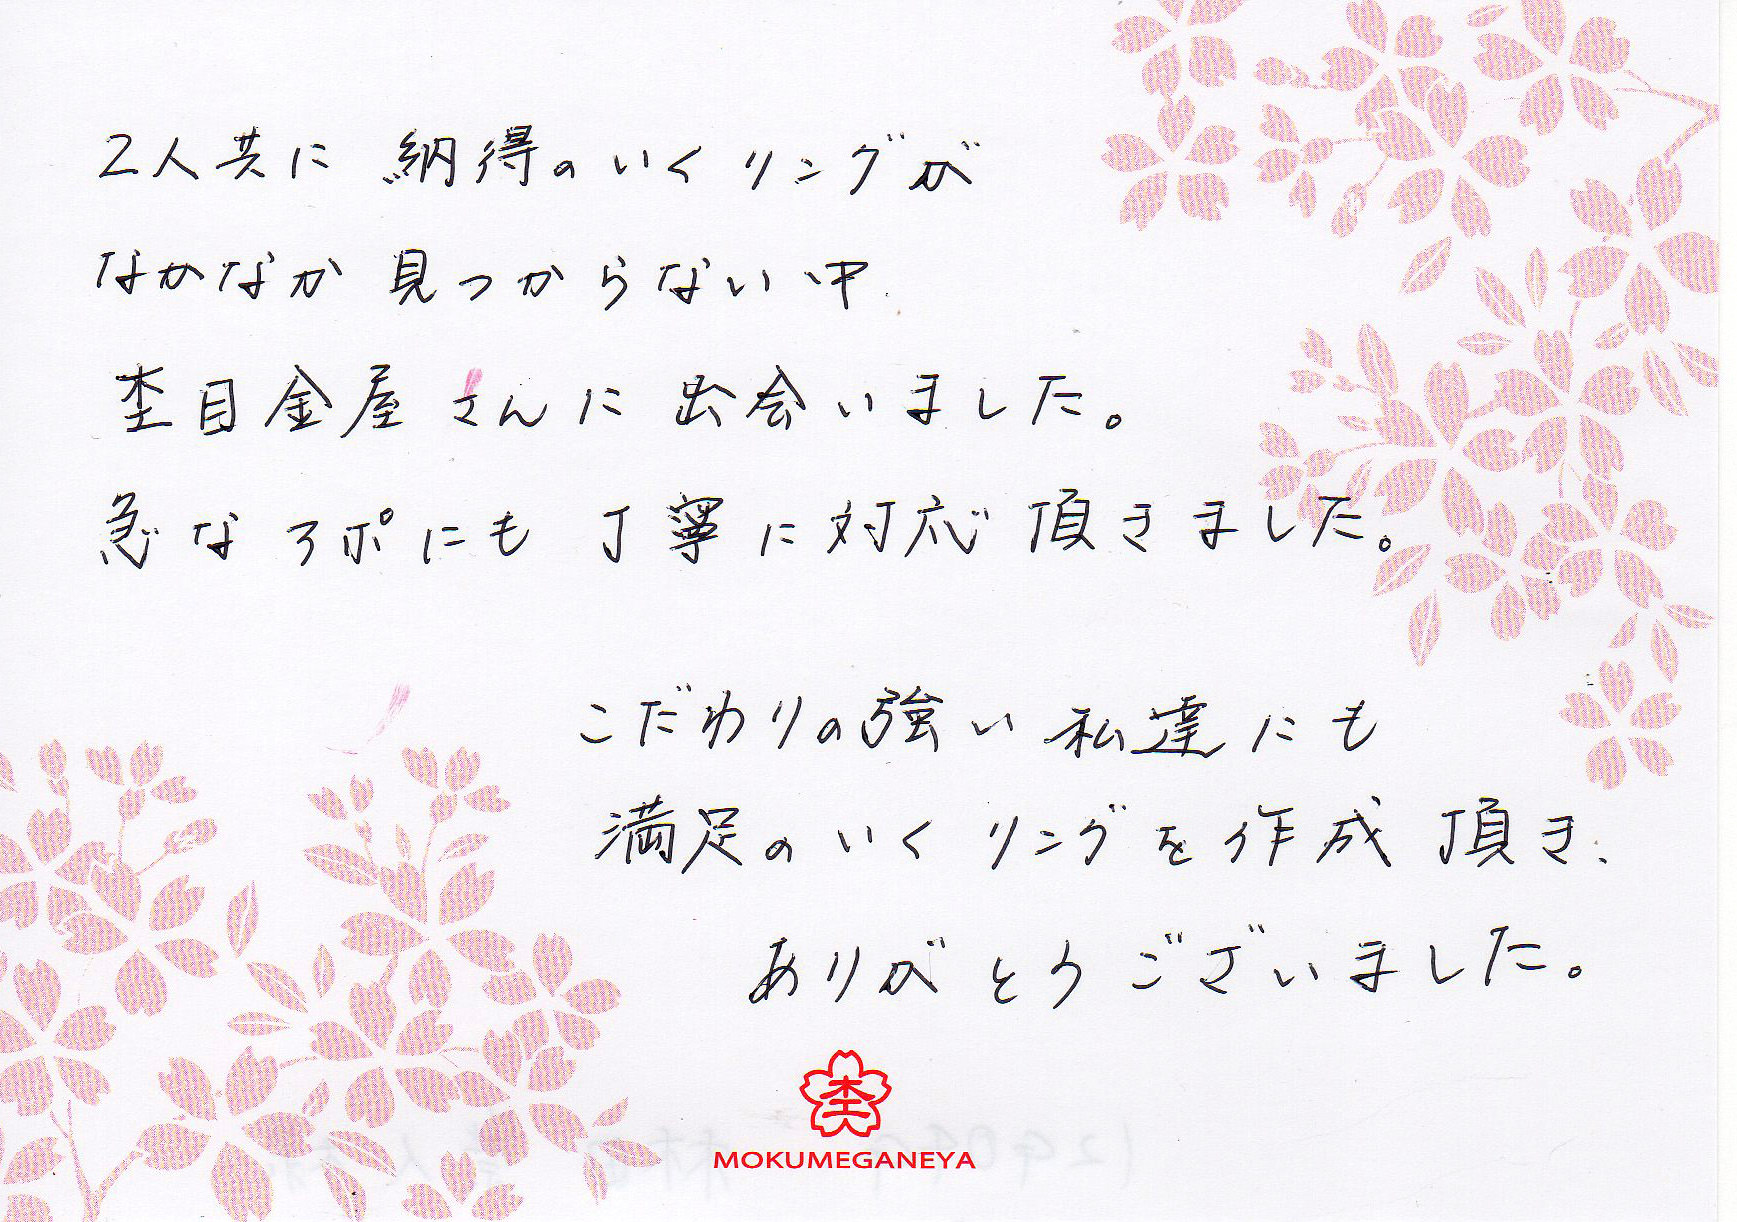 2人共に 納得のいくリングが
なかなか見つからない中、
杢目金屋さんに出会いました。
急なアポにも 丁寧に対応頂きました。
こだわりの強い私達にも
満足のいくリングを作成頂き、
ありがとうございました。
杢
MOKUMEGANEYA